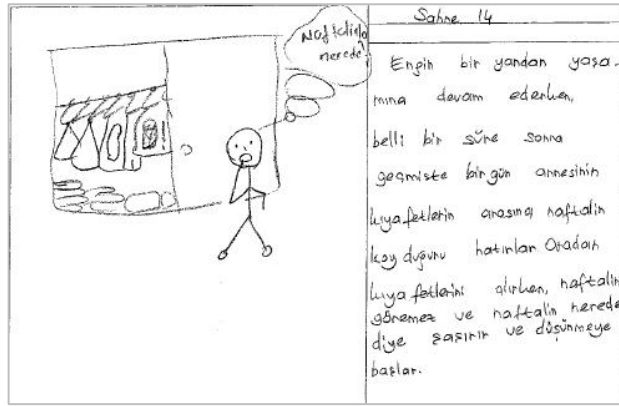 Naftalinle
nerede?
Sahne 14
Engin bir yandan yaşa-
mına devam ederken,
belli bir süre sonra
geçmişte bir gün annesinin
kıyafetlerin arasına naftalin
koyduğunu hatırlar Oradan
kıyafetlerini alırken, naftalin
göremez ve naftalin nerede
diye şaşırır ve düşünmeye
başlar.